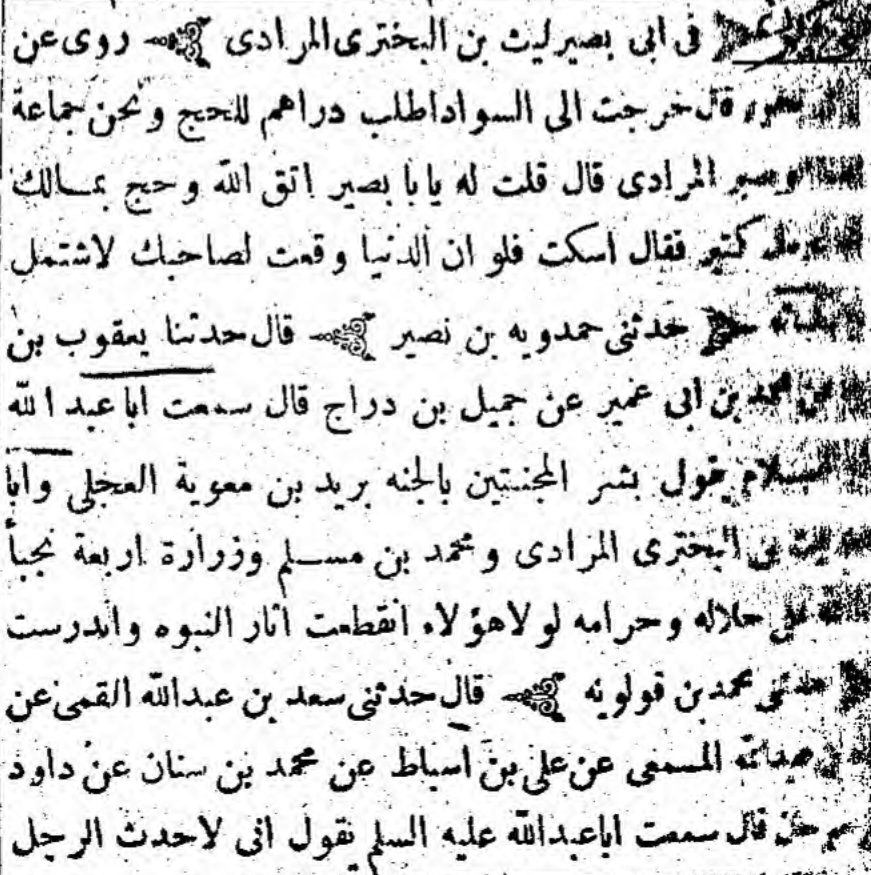 فى ابى بصير ليث بن البخترى المرادى روى عن
قال خرجت الى السواد اطلب دراهم للحج ونحن جماعة
المرادى قال قلت له يا با بصير اتق الله وحج بمالك
كثير فقال اسكت فلو ان الدنيا وقعت لصاحبك لاشتمل
حدثنى حمدويه بن نصير قال حدثنا يعقوب بن
محمد بن ابى عمير عن جميل بن دراج قال سمعت ابا عبد الله
يقول بشر المخبتين بالجنه بريد بن معوية العجلى وابا
البخترى المرادى ومحمد بن مسلم وزرارة اربعة نجبأ
حلاله وحرامه لولا هؤلاء انقطعت اثار النبوه واندرست
محمد بن قولويه قال حدثنى سعد بن عبدالله القمى عن
المسمعى عن على بن اسباط عن محمد بن سنان عن داود
قال سمعت اباعبدالله عليه السلم يقول انى لاحدث الرجل